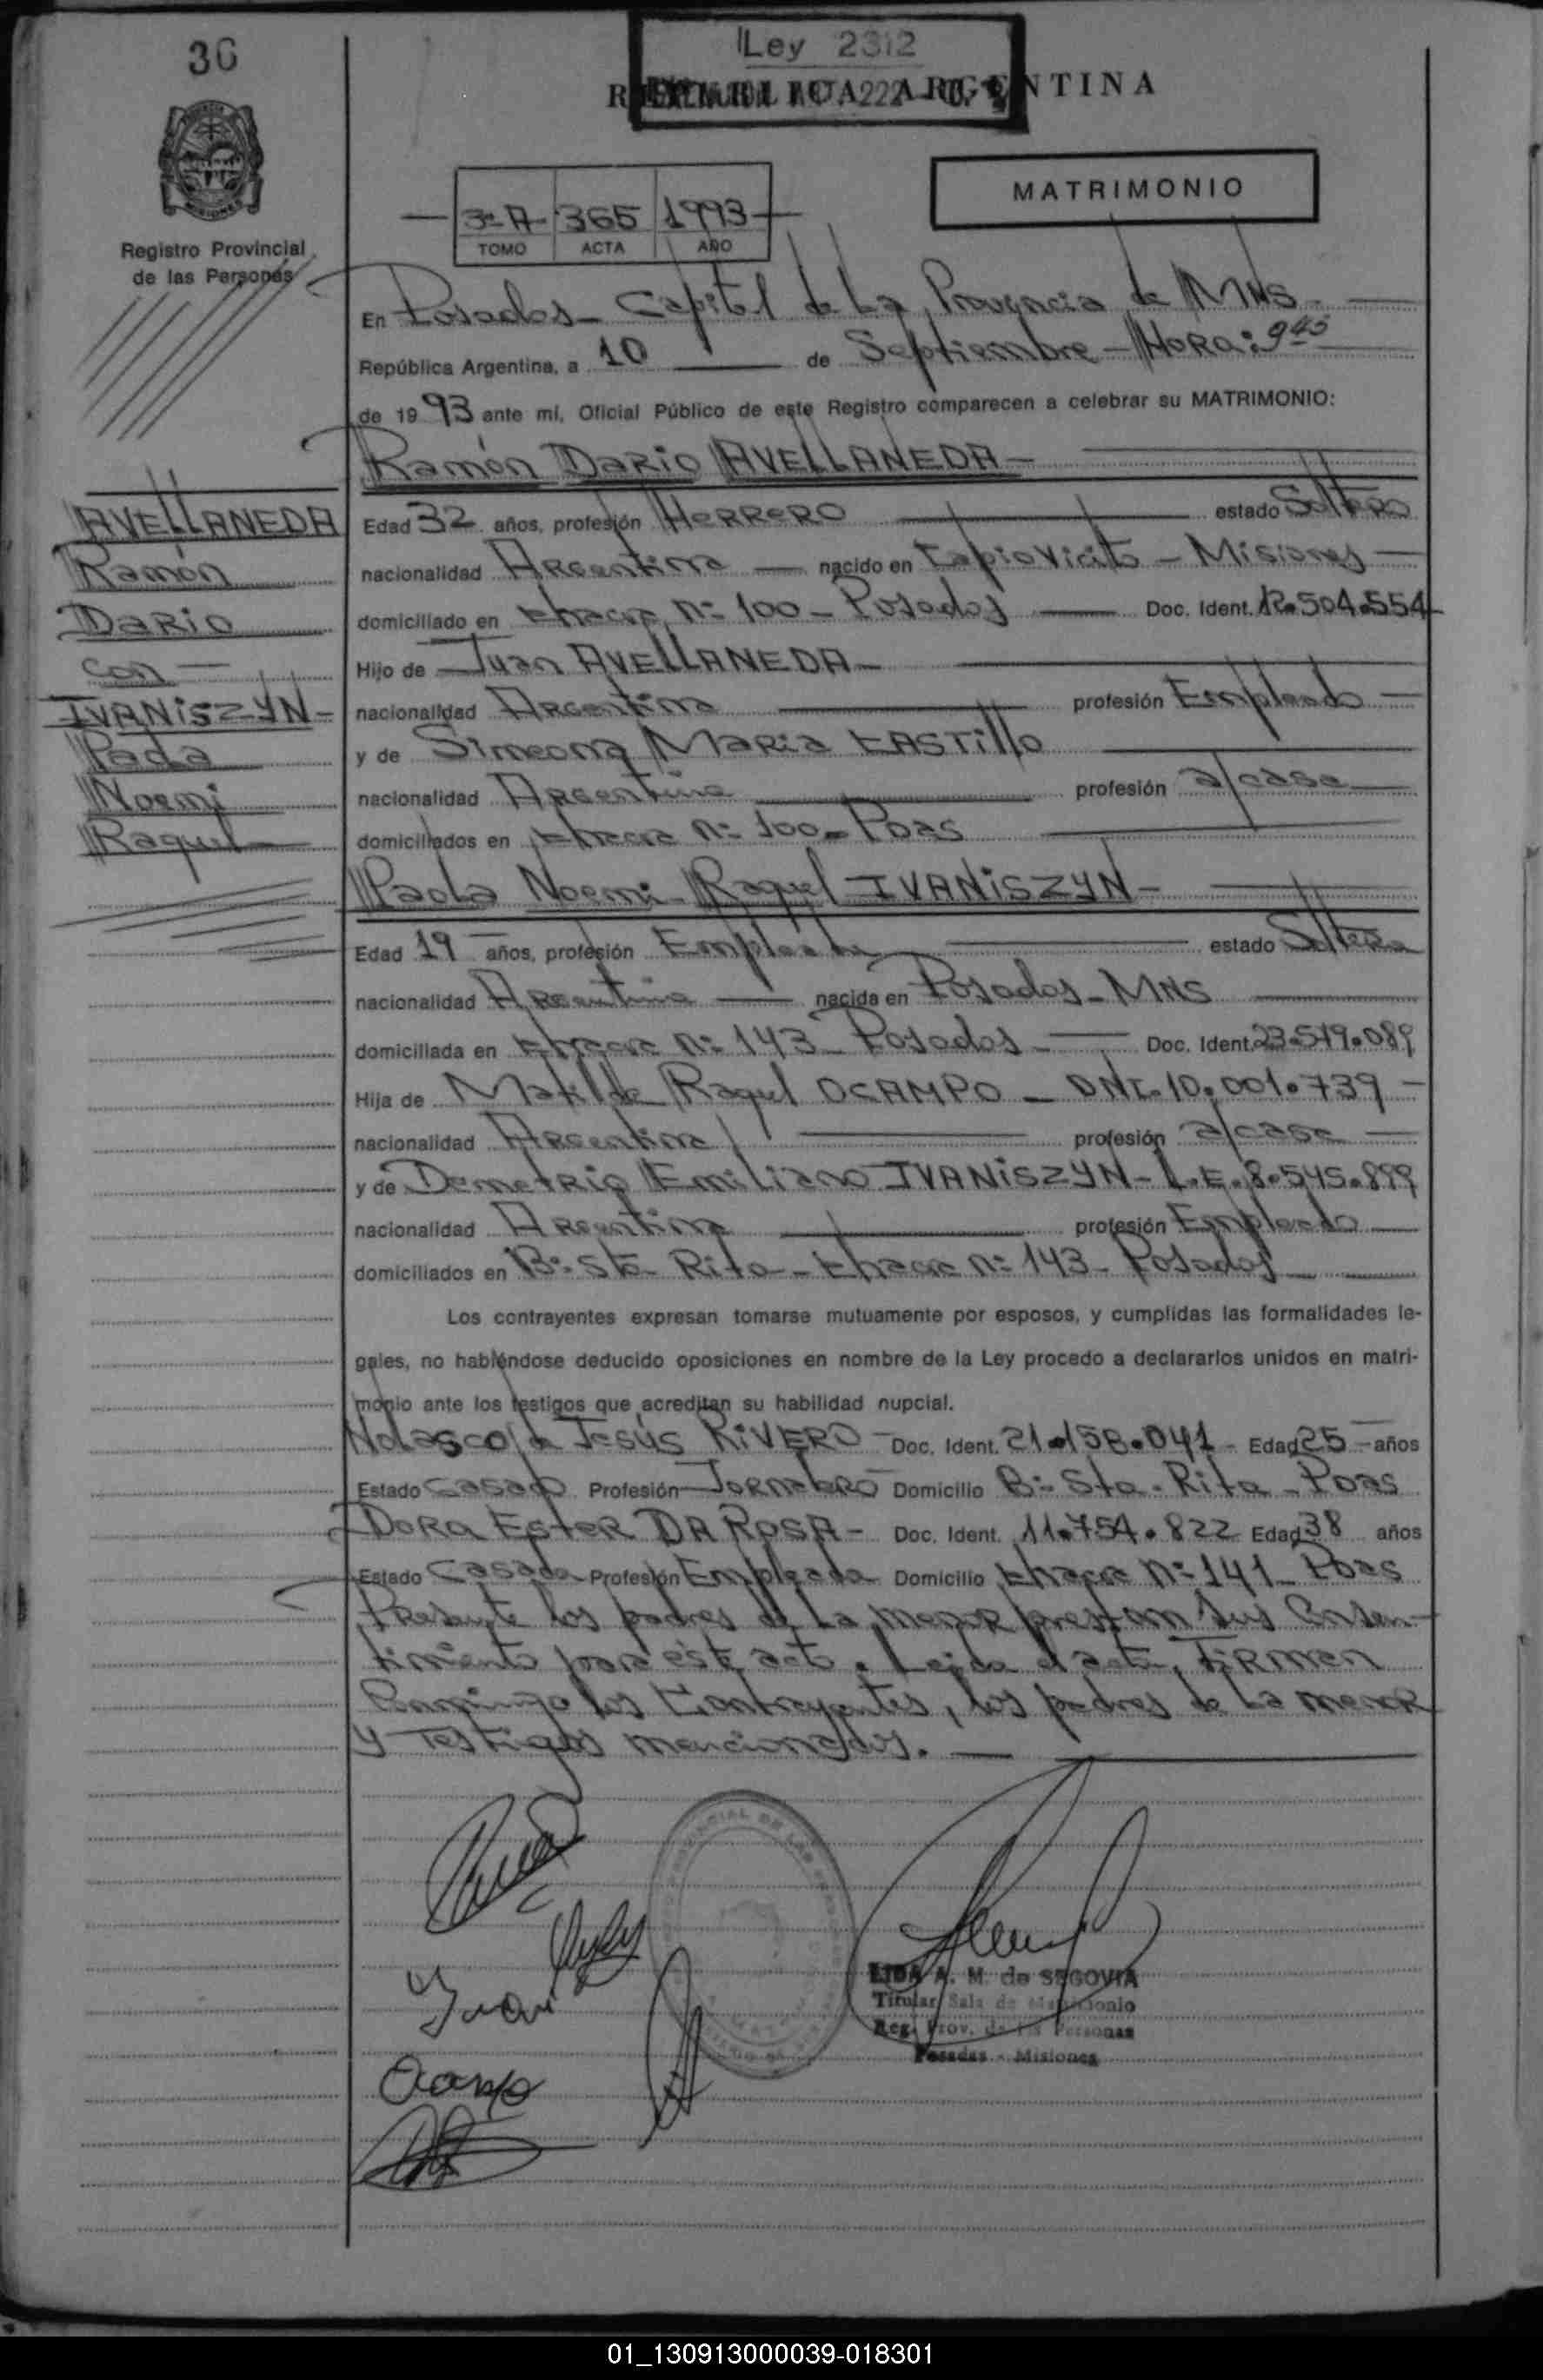 36
Ley 2312
REPUBLICA ARGENTINA
MATRIMONIO
3º A 365 1993
TOMO ACTA AÑO
MISIONES
Registro Provincial
de las Personas
En Posadas - Capital de La Provincia de MNS -
República Argentina, a 10 de Septiembre - Hora: 9 45
de 1993 ante mí, Oficial Público de este Registro comparecen a celebrar su MATRIMONIO:
Ramón Dario AVELLANEDA -
AVELLANEDA
Ramón
Dario
con -
IVANISZYN -
Paola
Noemi
Raquel
Edad 32 años, profesión Herrero estado Soltero
nacionalidad Argentina - nacido en Capiovicito - Misiones -
domiciliado en Chacra Nº 100 - Posadas Doc. Ident. 12.504.554
Hijo de Juan AVELLANEDA -
nacionalidad Argentina profesión Empleado -
y de Simeona Maria CASTILLO
nacionalidad Argentina profesión a/casa
domiciliados en Chacra Nº 100 - Poas
Paola Noemi Raquel IVANISZYN -
Edad 19 años, profesión Empleada estado Soltera
nacionalidad Argentina - nacida en Posadas - MNS
domiciliada en Chacra Nº 143 - Posados - Doc. Ident. 23.519.089
Hija de Matilde Raquel OCAMPO - DNI. 10.001.739 -
nacionalidad Argentina profesión a/casa -
y de Demetrio Emiliano IVANISZYN - L.E. 8.545.899
nacionalidad Argentina profesión Empleado
domiciliados en Bº Sta Rita - Chacra Nº 143 - Posadas
Los contrayentes expresan tomarse mutuamente por esposos, y cumplidas las formalidades le-
gales, no habiéndose deducido oposiciones en nombre de la Ley procedo a declararlos unidos en matri-
monio ante los testigos que acreditan su habilidad nupcial.
Nolasco de Jesús RIVERO - Doc. Ident. 21.158.041 - Edad 25 - años
Estado Casado Profesión Jornalero Domicilio Bº Sta. Rita - Poas
Dora Ester DA ROSA - Doc. Ident. 11.754.822 Edad 38 años
Estado Casada Profesión Empleada Domicilio Chacra Nº 141 - Poas
Presente los padres de La menor prestan sus Consen-
timiento para éste acto. Leida el acta, Firman
Conmigo los Contrayentes, los padres de La menor
y Testigos mencionados. -
Ocampo
LIDA A. M. de SEGOVIA
Titular Sala de Matrimonio
Reg. Prov. de las Personas
Posadas - Misiones
01_130913000039-018301